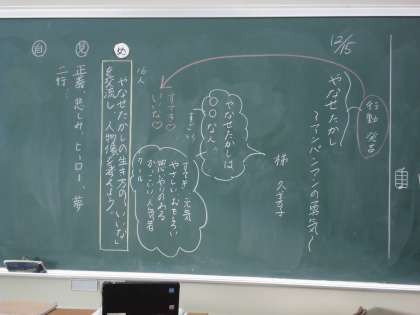 12/5
行動 発言
やなせたかし
〜アンパンマンの勇気〜
梯 久美子
やなせたかしは
〇〇な人。
すごく
すてき♡
いいな♡
すてき 元気
やさしい おもしろい
思いやりのある
かっこいい 人気者
クール
16人
め
やなせたかしの生き方の「いいな」
を交流し 人物像を考えよう。
見
正義、悲しみ、ヒーロー、夢
二行…
自